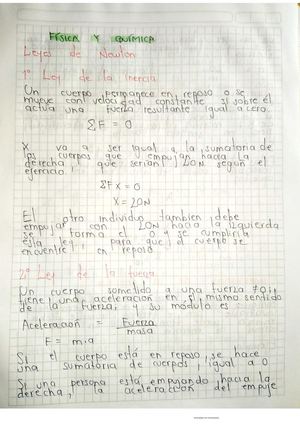 FÍSICA Y QUÍMICA
Leyes de Newton
1° Ley de la Inercia
Un cuerpo permanece en reposo o se
mueve con velocidad constante si sobre él
actúa una fuerza resultante igual a cero.
ΣF = 0
X va a ser igual a la sumatoria de
los cuerpos que empujan hacia la
derecha, que serían 20N según el
ejercicio.
ΣFx = 0
X = 20N
El otro individuo también debe
empujar con 20N hacia la izquierda
se forma el 0 y se cumpliría
esta ley para que el cuerpo se
encuentre en reposo.
2° Ley de la fuerza
Un cuerpo sometido a una fuerza
tiene una aceleración en el mismo sentido
de la fuerza, y su módulo es:
Aceleración = Fuerza
masa
F = m.a
Si el cuerpo está en reposo, se hace
una sumatoria de cuerpos, igual a 0
Si una persona está empujando hacia la
derecha, la aceleración del empuje